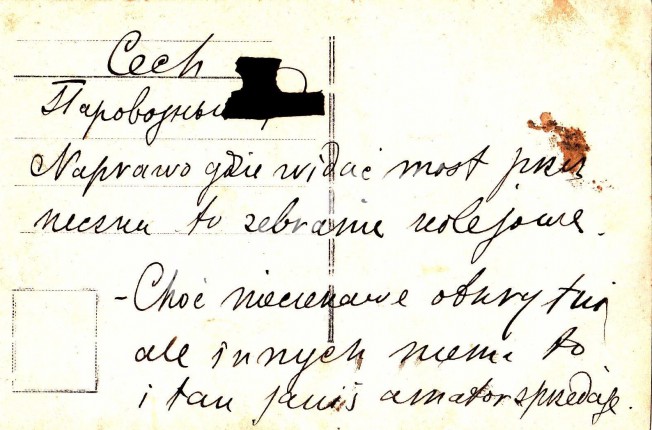 Cech
Пароводны
Naprawo gdzie widać most przez
to zebranie kolejowe.
- Choć nieciekawe otkrytki
ale innych niema to
i tak jakiś amator sprzedaje.